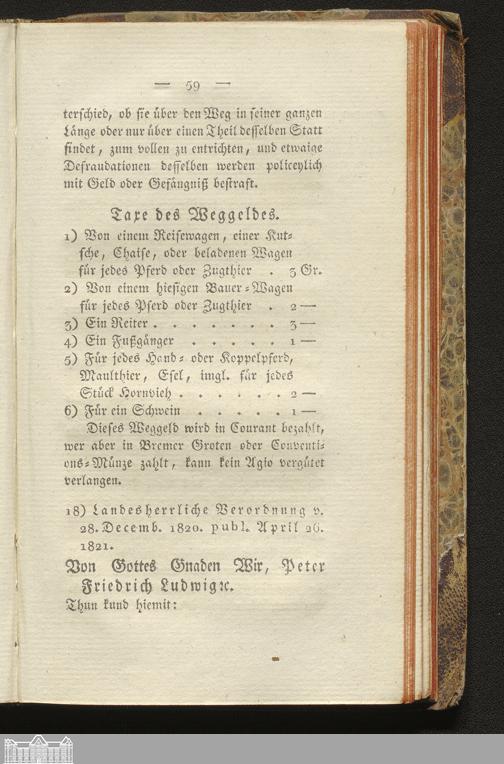 — 59 —
terschied, ob sie über den Weg in seiner ganzen
Länge oder nur über einen Theil desselben Statt
findet, zum vollen zu entrichten, und etwaige
Defraudationen desselben werden policeylich
mit Geld oder Gefängniß bestraft.
Taxe des Weggeldes.
1) Von einem Reisewagen, einer Kut-
sche, Chaise, oder beladenen Wagen
für jedes Pferd oder Zugthier . 3 Gr.
2) Von einem hiesigen Bauer-Wagen
für jedes Pferd oder Zugthier . 2 —
3) Ein Reiter . . . . . . . 3 —
4) Ein Fußgänger . . . . . 1 —
5) Für jedes Hand- oder Koppelpferd,
Maulthier, Esel, imgl. für jedes
Stück Hornvieh . . . . . . 2 —
6) Für ein Schwein . . . . . 1 —
Dieses Weggeld wird in Courant bezahlt,
wer aber in Bremer Groten oder Conventi-
ons-Münze zahlt, kann kein Agio vergütet
verlangen.
18) Landesherrliche Verordnung v.
28. Decemb. 1820. publ. April 26.
1821.
Von Gottes Gnaden Wir, Peter
Friedrich Ludwig ꝛc.
Thun kund hiemit: